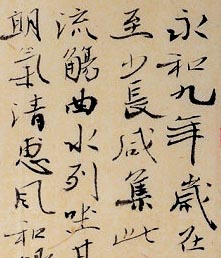 永和九年歲在
至少長咸集此
流觴曲水列坐其
朗氣清惠風和